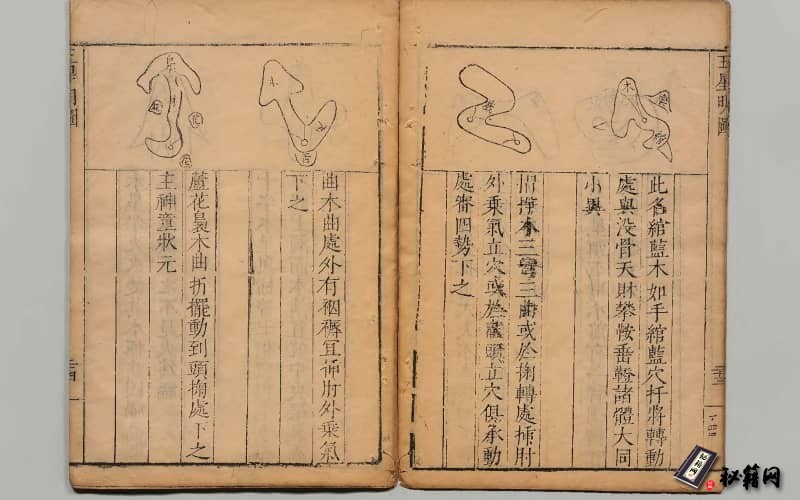 五星明圖
木
此名綰藍木如手綰藍穴扦將轉動
處與没骨天財攀鞍垂鐙諸體大同
小異
木三彎三曲或於掬轉處揷肘
外乘氣立穴或於頭立穴俱承動
處審四勢下之
木
曲木曲處外有裀褥宜揷肘外乘氣
下之
蘆花裊木曲折擺動到頭掬處下之
主神童狀元
五星明圖
秘籍网